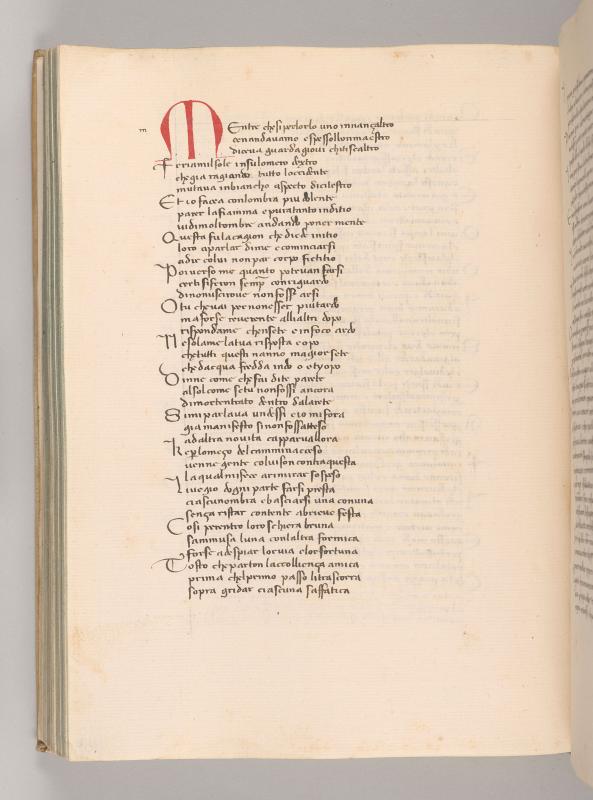 m
MEntre chesiperlorlo uno innançaltro
cenandavamo espessollonmaestro
diceva guarda giovi chitiscaltro
Feriamilsole insulomero dextro
chegia ragiando tutto loccidente
mutava inbiancho aspecto dicilestro
Et io facea conlombra piu dolente
parer lafiamma epuratanto inditio
vidimoltombre andando poner mente
Questa fulacagion chediede initio
loro aparlar dime ecominciarsi
adir colui nonpar corpo fictitio
Poiverso me quanto potevan farsi
certisiferon semp conriguardo
dinonuscirove nonfosser arsi
Otu chevai pernonesser piutardo
maforse reverente allialtri dopo
rispondame chensete einfoco ardo
Nesolame latua risposta e opo
chetutti questi nanno magiorsete
chedacqua fredda indo o etyopo
Dinne come chefai dite parete
alsol come setu nonfossi ancora
dimorteentrato dentro dalarete
Simiparlava undessi eio mifora
gia manifesto sinonfossatteso
adaltra novita capparvallora
Kperlomeço delcamminacceso
venne gente colvison contraquesta
laqualmifece arimirar sospeso
Iivegio dogni parte farsi presta
ciascunombra ebasciarsi una conuna
sença ristar contente abrieve festa
Cosi perentro loro schiera bruna
sammusa luna conlaltra formica
forse adespiar lorvia elorfortuna
Tosto cheparton laccolliença amica
prima chelprimo passo litrascorra
sopra gridar ciascuna saffatica